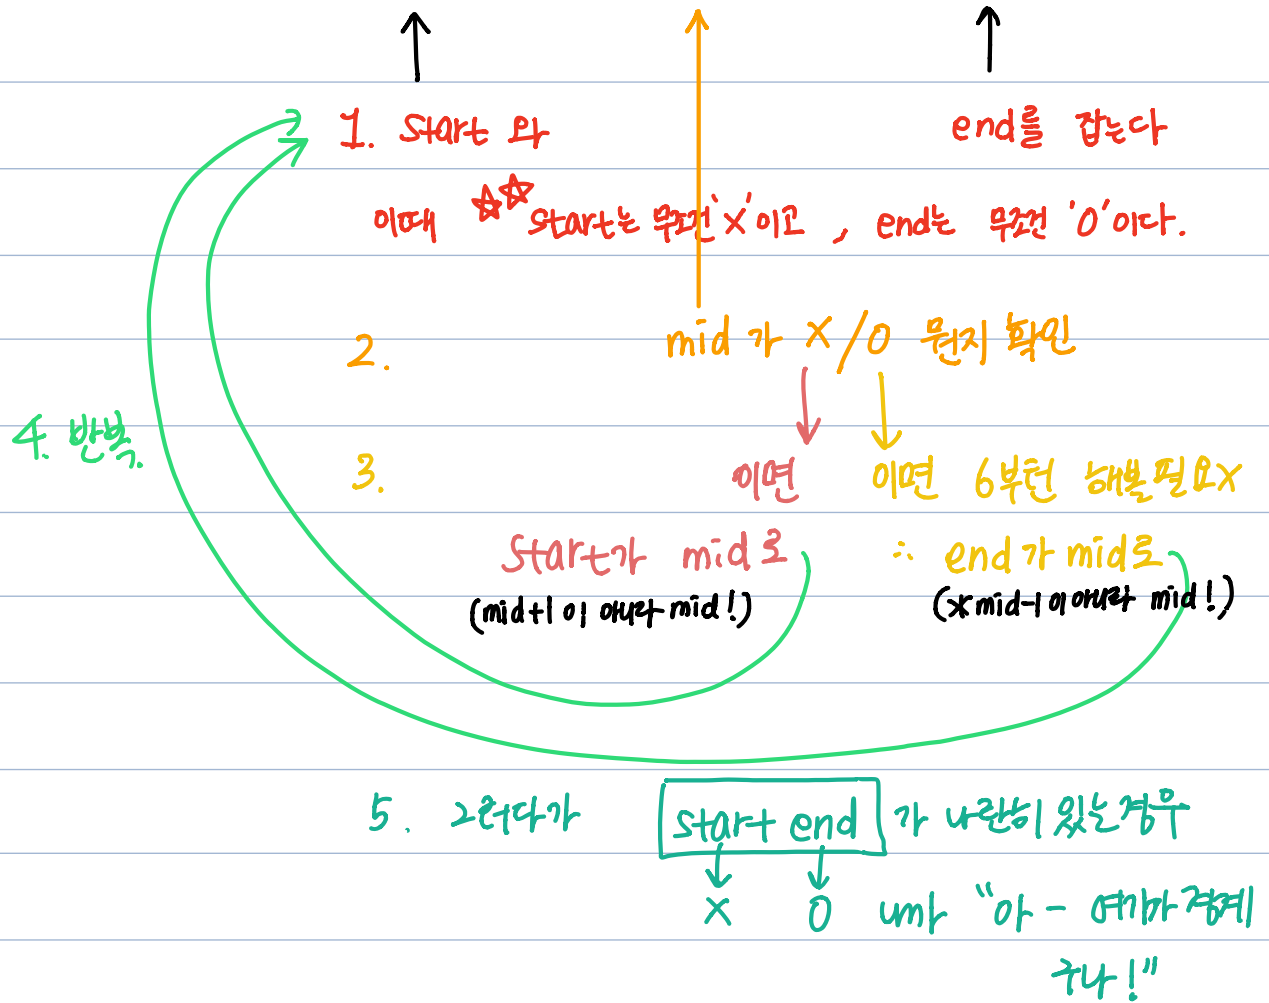 1. start 와 end를 잡는다
이때 ☆☆ start는 무조건 'X'이고, end는 무조건 'O'이다.
2. mid가 X/O 뭔지 확인
4. 반복.
3. 이면 이면 6부턴 해볼필요X
start가 mid로 ∴ end가 mid로
(mid+1이 아니라 mid!) (*mid-1이 아니라 mid!)
5. 그러다가 start end 가 나란히 있는경우
X O "아- 여기가 경계
구나!"